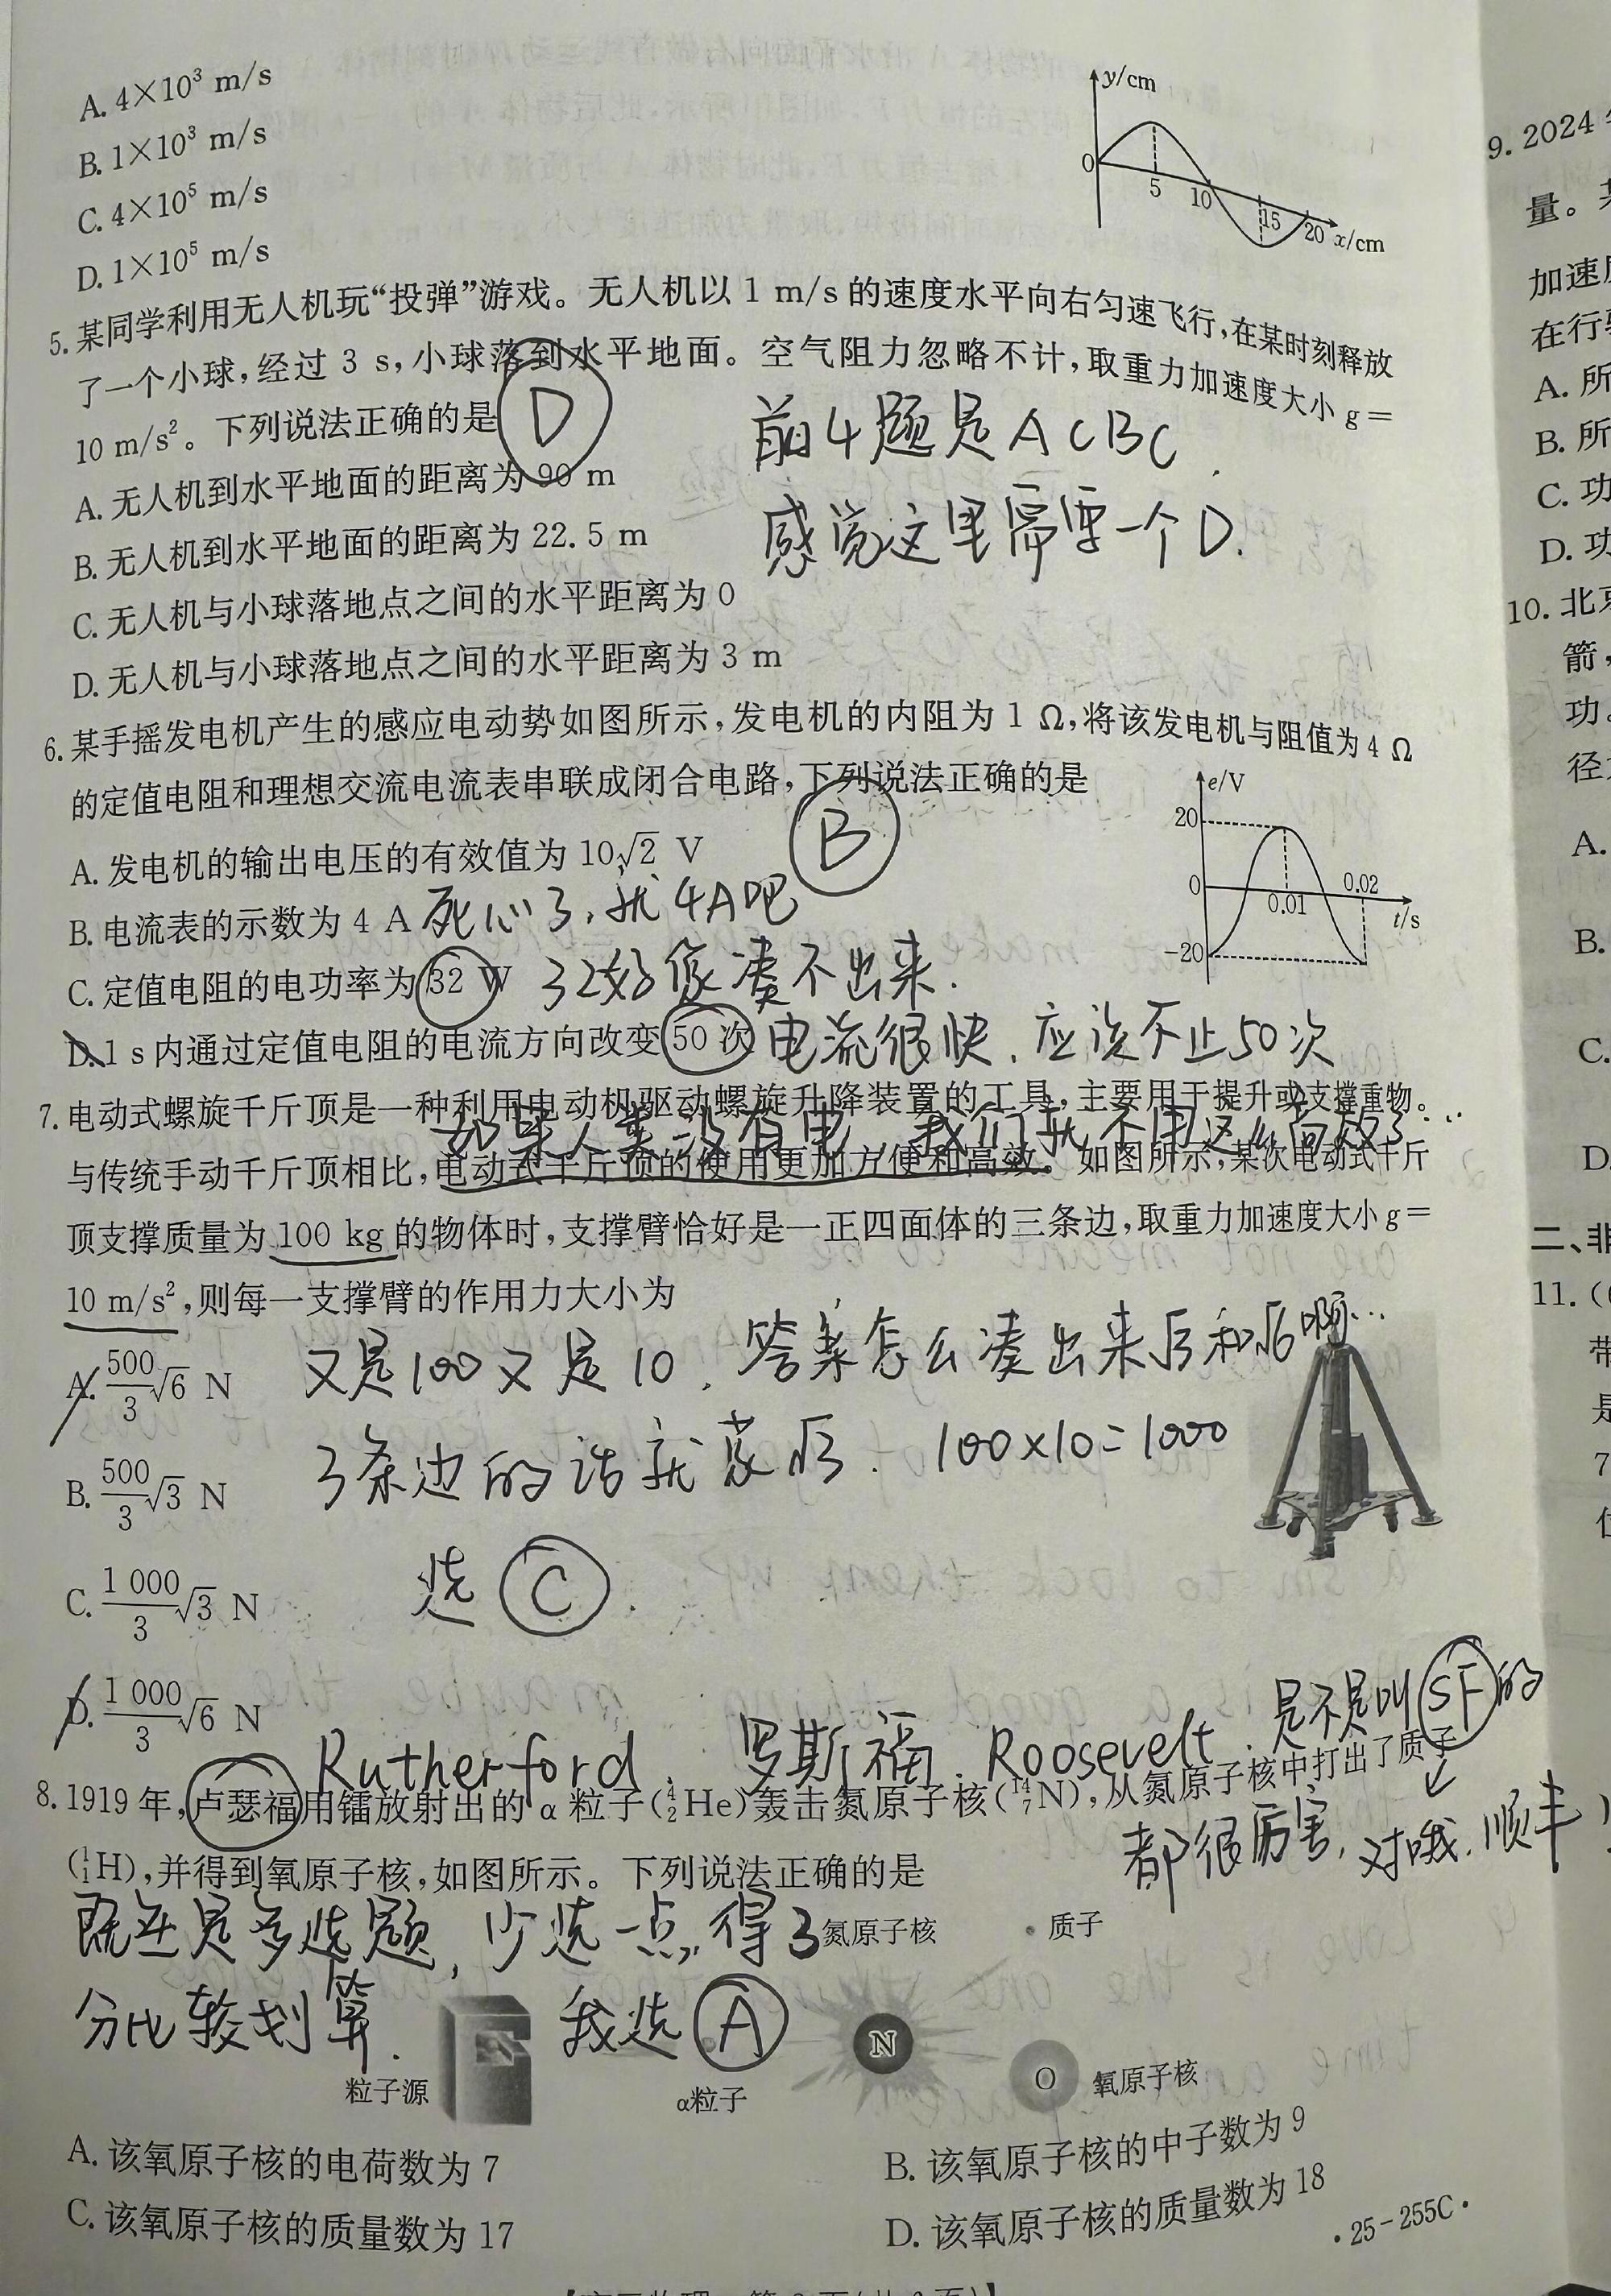 A. 4×10³ m/s
B. 1×10³ m/s
C. 4×10⁵ m/s
D. 1×10⁵ m/s
y/cm
0
5
10
15
20
x/cm
5. 某同学利用无人机玩“投弹”游戏。无人机以 1 m/s 的速度水平向右匀速飞行,在某时刻释放
了一个小球,经过 3 s,小球落到水平地面。空气阻力忽略不计,取重力加速度大小 g=
10 m/s²。下列说法正确的是
D
前4题是ACBC.
感觉这里需要一个D.
A. 无人机到水平地面的距离为 90 m
B. 无人机到水平地面的距离为 22.5 m
C. 无人机与小球落地点之间的水平距离为 0
D. 无人机与小球落地点之间的水平距离为 3 m
6. 某手摇发电机产生的感应电动势如图所示,发电机的内阻为 1 Ω,将该发电机与阻值为 4 Ω
的定值电阻和理想交流电流表串联成闭合电路,下列说法正确的是
B
e/V
20
0
0.01
0.02
t/s
−20
A. 发电机的输出电压的有效值为 10√2 V
B. 电流表的示数为 4 A 死心了,就4A吧
C. 定值电阻的电功率为 32 W 32好像凑不出来.
D. 1 s 内通过定值电阻的电流方向改变 50 次 电流很快,应该不止50次
7. 电动式螺旋千斤顶是一种利用电动机驱动螺旋升降装置的工具,主要用于提升或支撑重物。
如果人类没有电,我们就不用这么高效了...
与传统手动千斤顶相比,电动式千斤顶的使用更加方便和高效。如图所示,某次电动式千斤
顶支撑质量为 100 kg 的物体时,支撑臂恰好是一正四面体的三条边,取重力加速度大小 g=
10 m/s²,则每一支撑臂的作用力大小为
A. 500/3 √6 N
又是100又是10,答案怎么凑出来√3和√6啊...
B. 500/3 √3 N
3条边的话就蒙√3. 100×10=1000
C. 1 000/3 √3 N
选 C.
D. 1 000/3 √6 N
Rutherford, 罗斯福, Roosevelt, 是不是叫SF的
都很厉害,对哦,顺丰
8. 1919 年,卢瑟福用镭放射出的 α 粒子(⁴₂He)轰击氮原子核(¹⁴₇N),从氮原子核中打出了质子
(¹₁H),并得到氧原子核,如图所示。下列说法正确的是
既然是多选题,少选一点,得3
分比较划算.
我选 A
氮原子核
质子
N
O
粒子源
α粒子
氧原子核
A. 该氧原子核的电荷数为 7
B. 该氧原子核的中子数为 9
C. 该氧原子核的质量数为 17
D. 该氧原子核的质量数为 18
·25-255C·
9. 2024
量。
加速
在行
A. 所
B. 所
C. 功
D. 功
10. 北京
箭,
功。
径
A.
B.
C.
D.
二、非
11. (
带
是
7